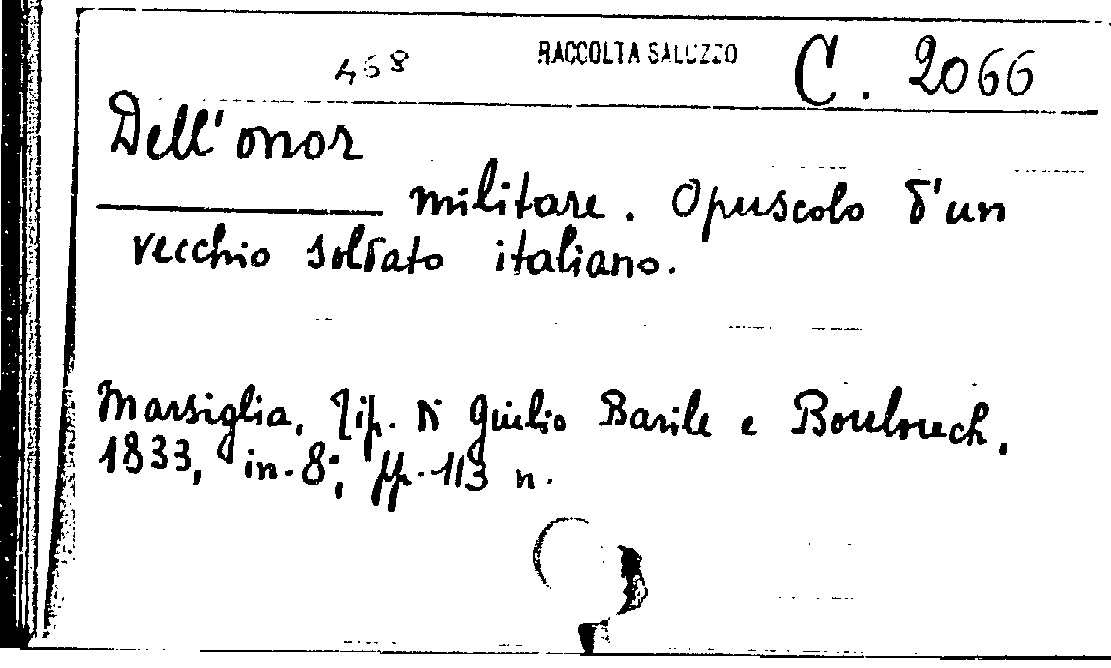 468 RACCOLTA SALUZZO C. 2066
Dell' onor
militare. Opuscolo d'un
vecchio soldato italiano.
Marsiglia, Tip. di Giulio Barile e Boulouch,
1833, in-8°, pp. 113 n.